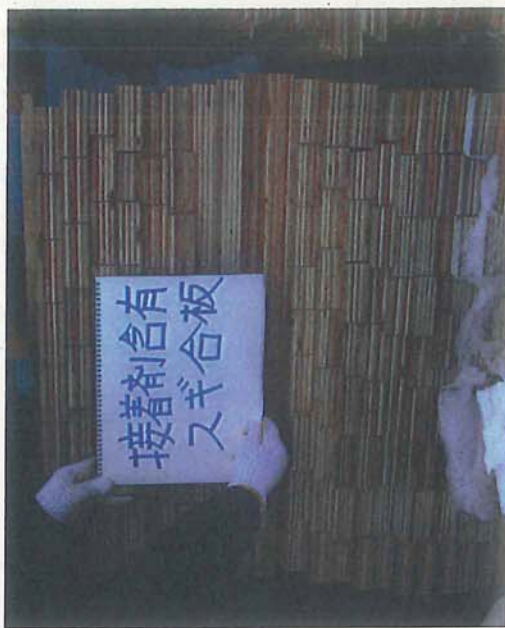 接着剤含有
スギ合板